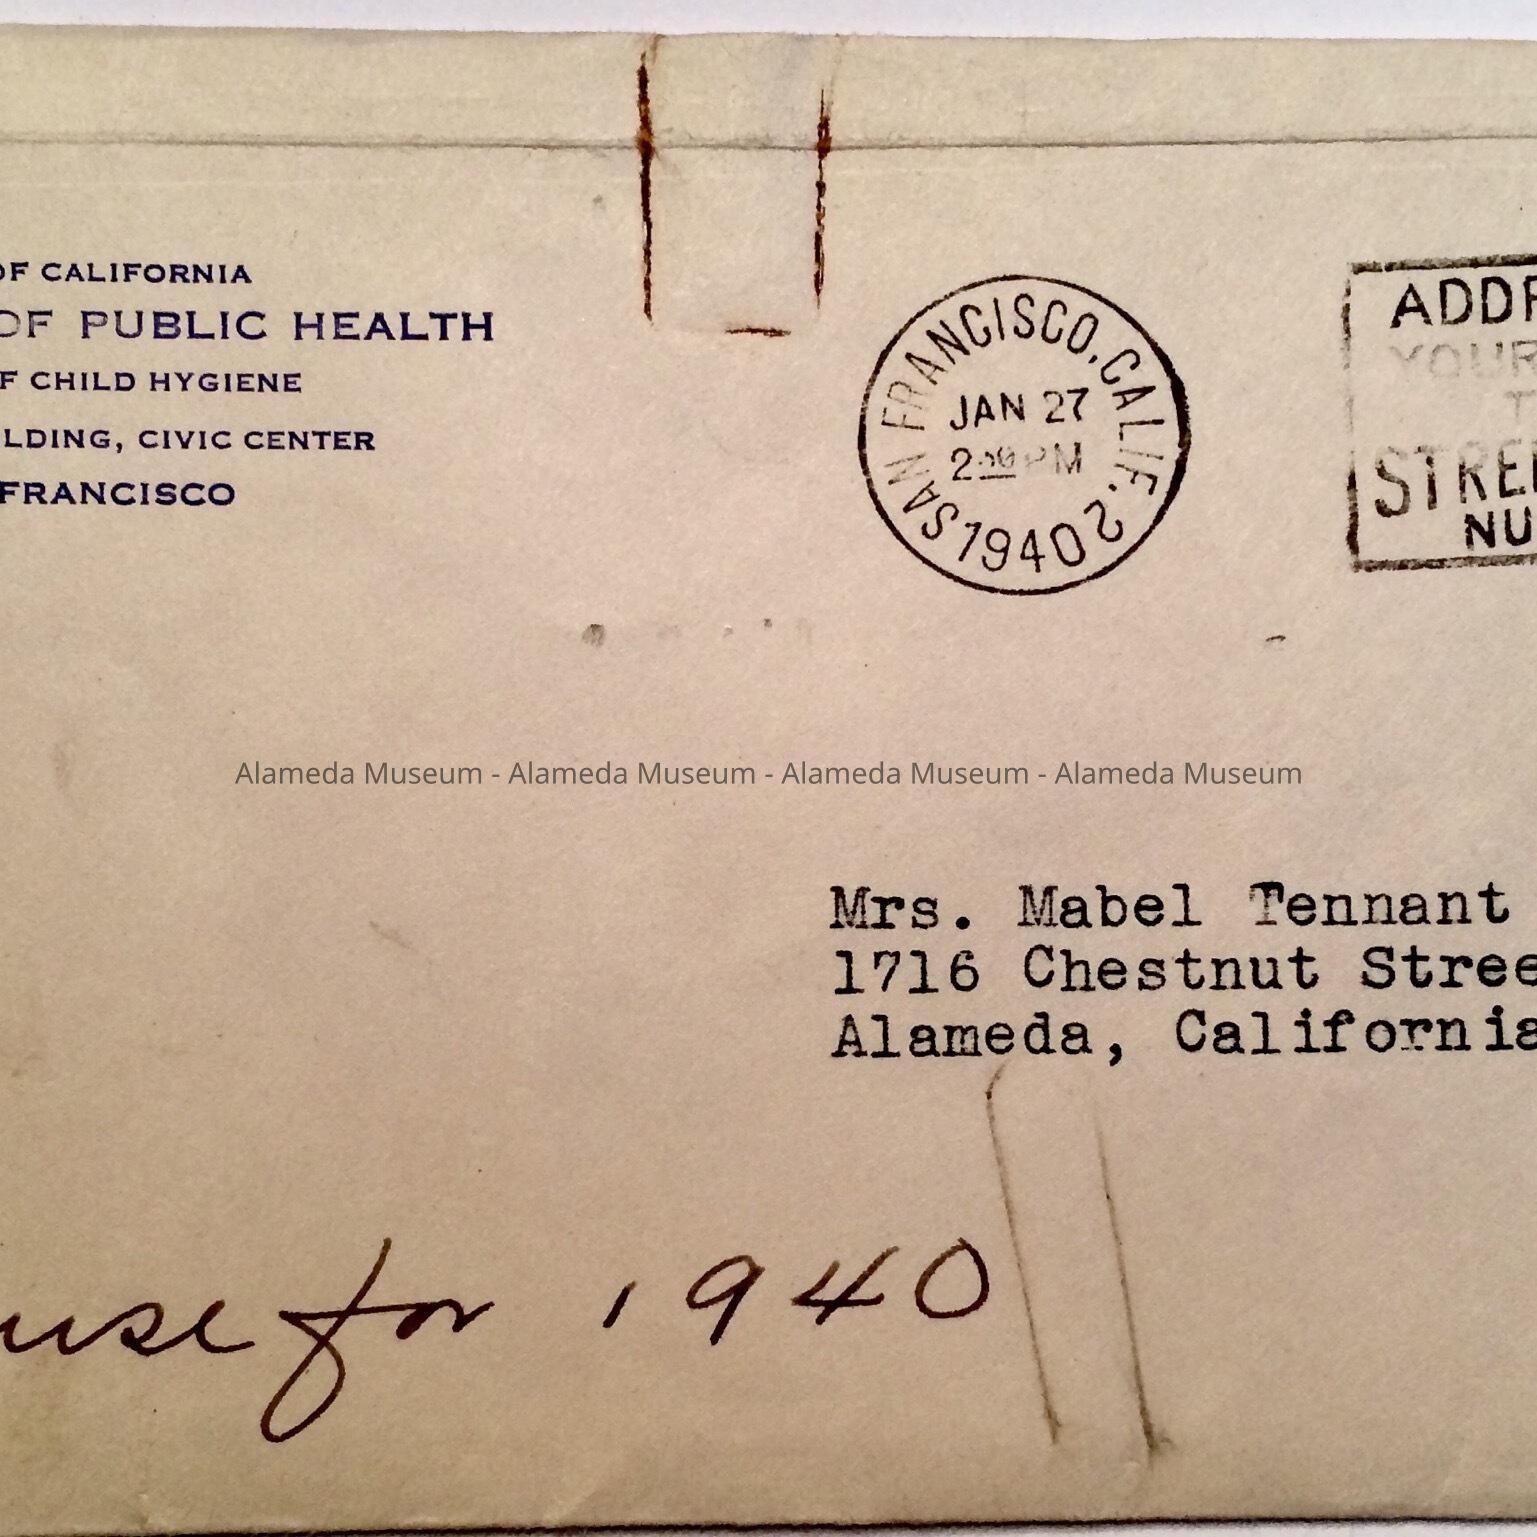 OF CALIFORNIA
OF PUBLIC HEALTH
F CHILD HYGIENE
LDING, CIVIC CENTER
FRANCISCO
SAN FRANCISCO, CALIF. 2
JAN 27
2 PM
1940
ADDR
YOUR
T
STREE
NU
Alameda Museum - Alameda Museum - Alameda Museum - Alameda Museum
Mrs. Mabel Tennant
1716 Chestnut Stree
Alameda, California
use for 1940